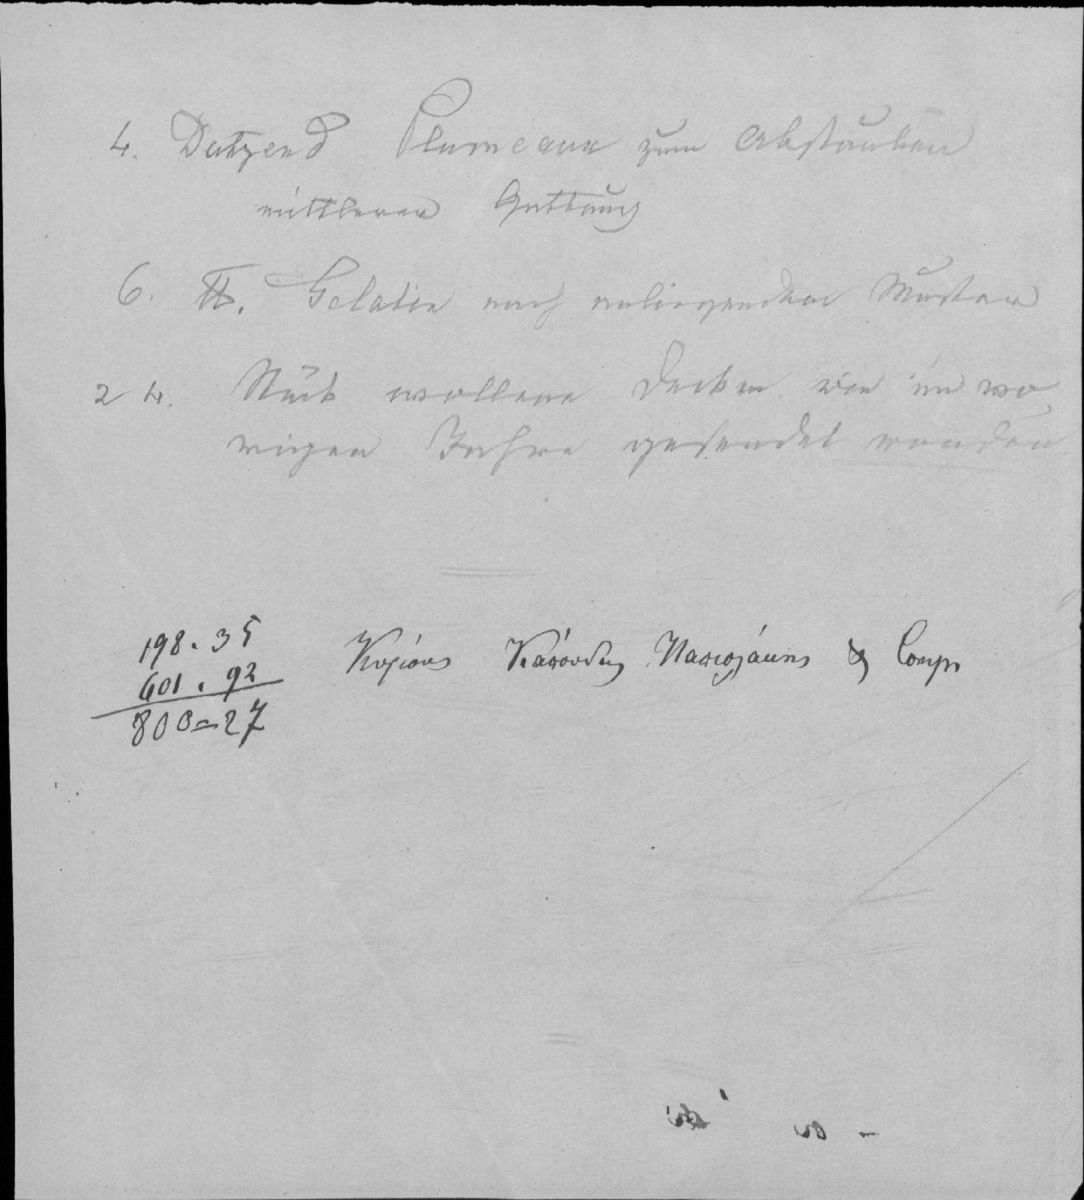 4. Dutzend Plumeaux zum Abstauben
mittlerer Gattung
6. ℔. Gelatin nach anliegenden Muster
24. Stück wollene Decken wie im vo
rigen Jahre gesendet worden
198.35
601.92
800=27
Κυρίους & Comp